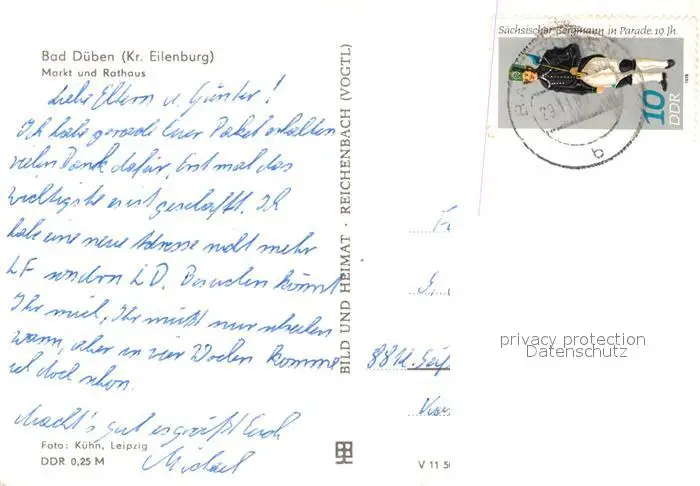 Bad Düben (Kr. Eilenburg)
Markt und Rathaus
Liebe Eltern u. Günter!
Ich habe gerade Euer Paket erhalten
vielen Dank dafür. Erst mal das
wichtigste es ist geschafft. Ich
habe eine neue Adresse nicht mehr
LF sondern LD. Besuchen könnt
Ihr mich, Ihr müßt nur schreiben
wann, aber in vier Wochen komme
ich doch schon.
Macht's gut es grüßt Euch
Michael
Foto: Kühn, Leipzig
DDR 0,25 M
BILD UND HEIMAT · REICHENBACH (VOGTL)
V 11 50
Sächsischer Bergmann in Parade. 19. Jh.
10
DDR
b
privacy protection
Datenschutz